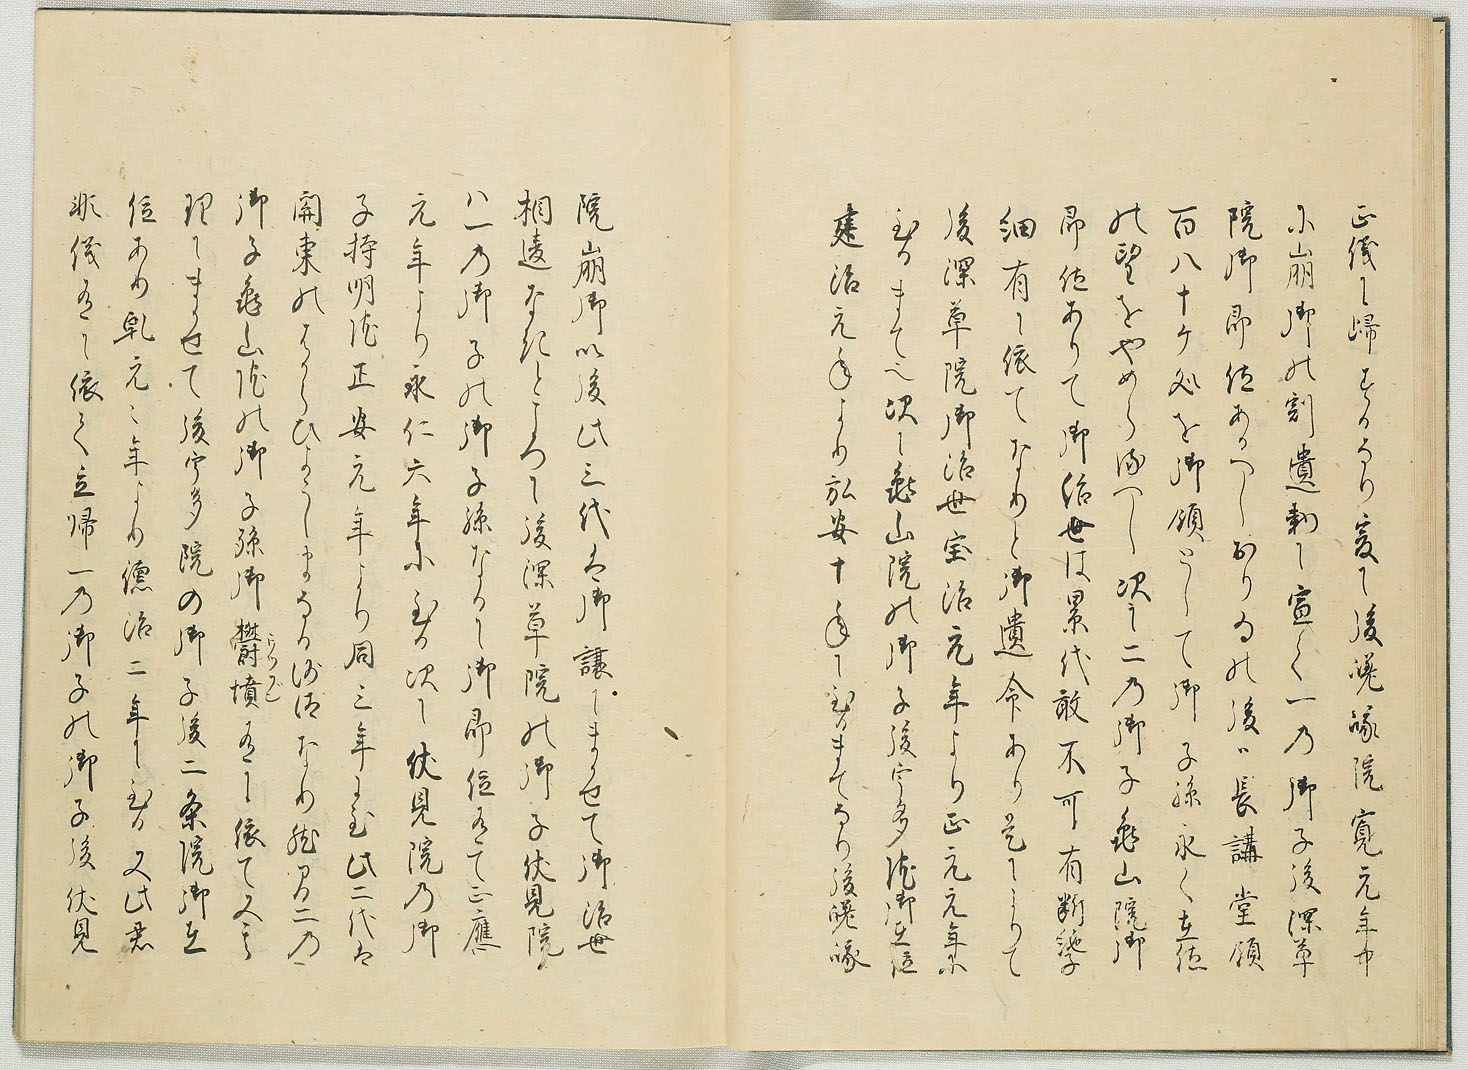 正儀に帰するなり爰に後嵯峨院寛元年中
に崩御の刻遺勅に宣く一の御子後深草
院御即位あるへしおりゐの後は長講堂領
百八十ケ処を御領として御子孫永く在位
の望をやめらるへし次に二の御子亀山院御
即位ありて御治世は累代敢不可有断絶子
細有に依てなりと御遺命あり是によりて
後深草院御治世宝治元年より正元元年に
至るまて也次に亀山院の御子後宇多院御在位
建治元年より弘安十年に至るまてなり後嵯峨
院崩御以後此三代は御譲にまかせて御治世
相違なきところに後深草院の御子伏見院
は一の御子の御子孫なるに御即位有て正應
元年より永仁六年に至る次に伏見院の御
子持明院正安元年より同三年に至此二代は
関東のはからひよこしまなる沙汰なり然間二の
御子亀山院の御子孫御欝墳有に依て又其
理にまかせて後宇多院の御子後二条院御在
位あり乾元々年より徳治二年に至る又此君
非儀有に依て立帰一の御子の御子後伏見